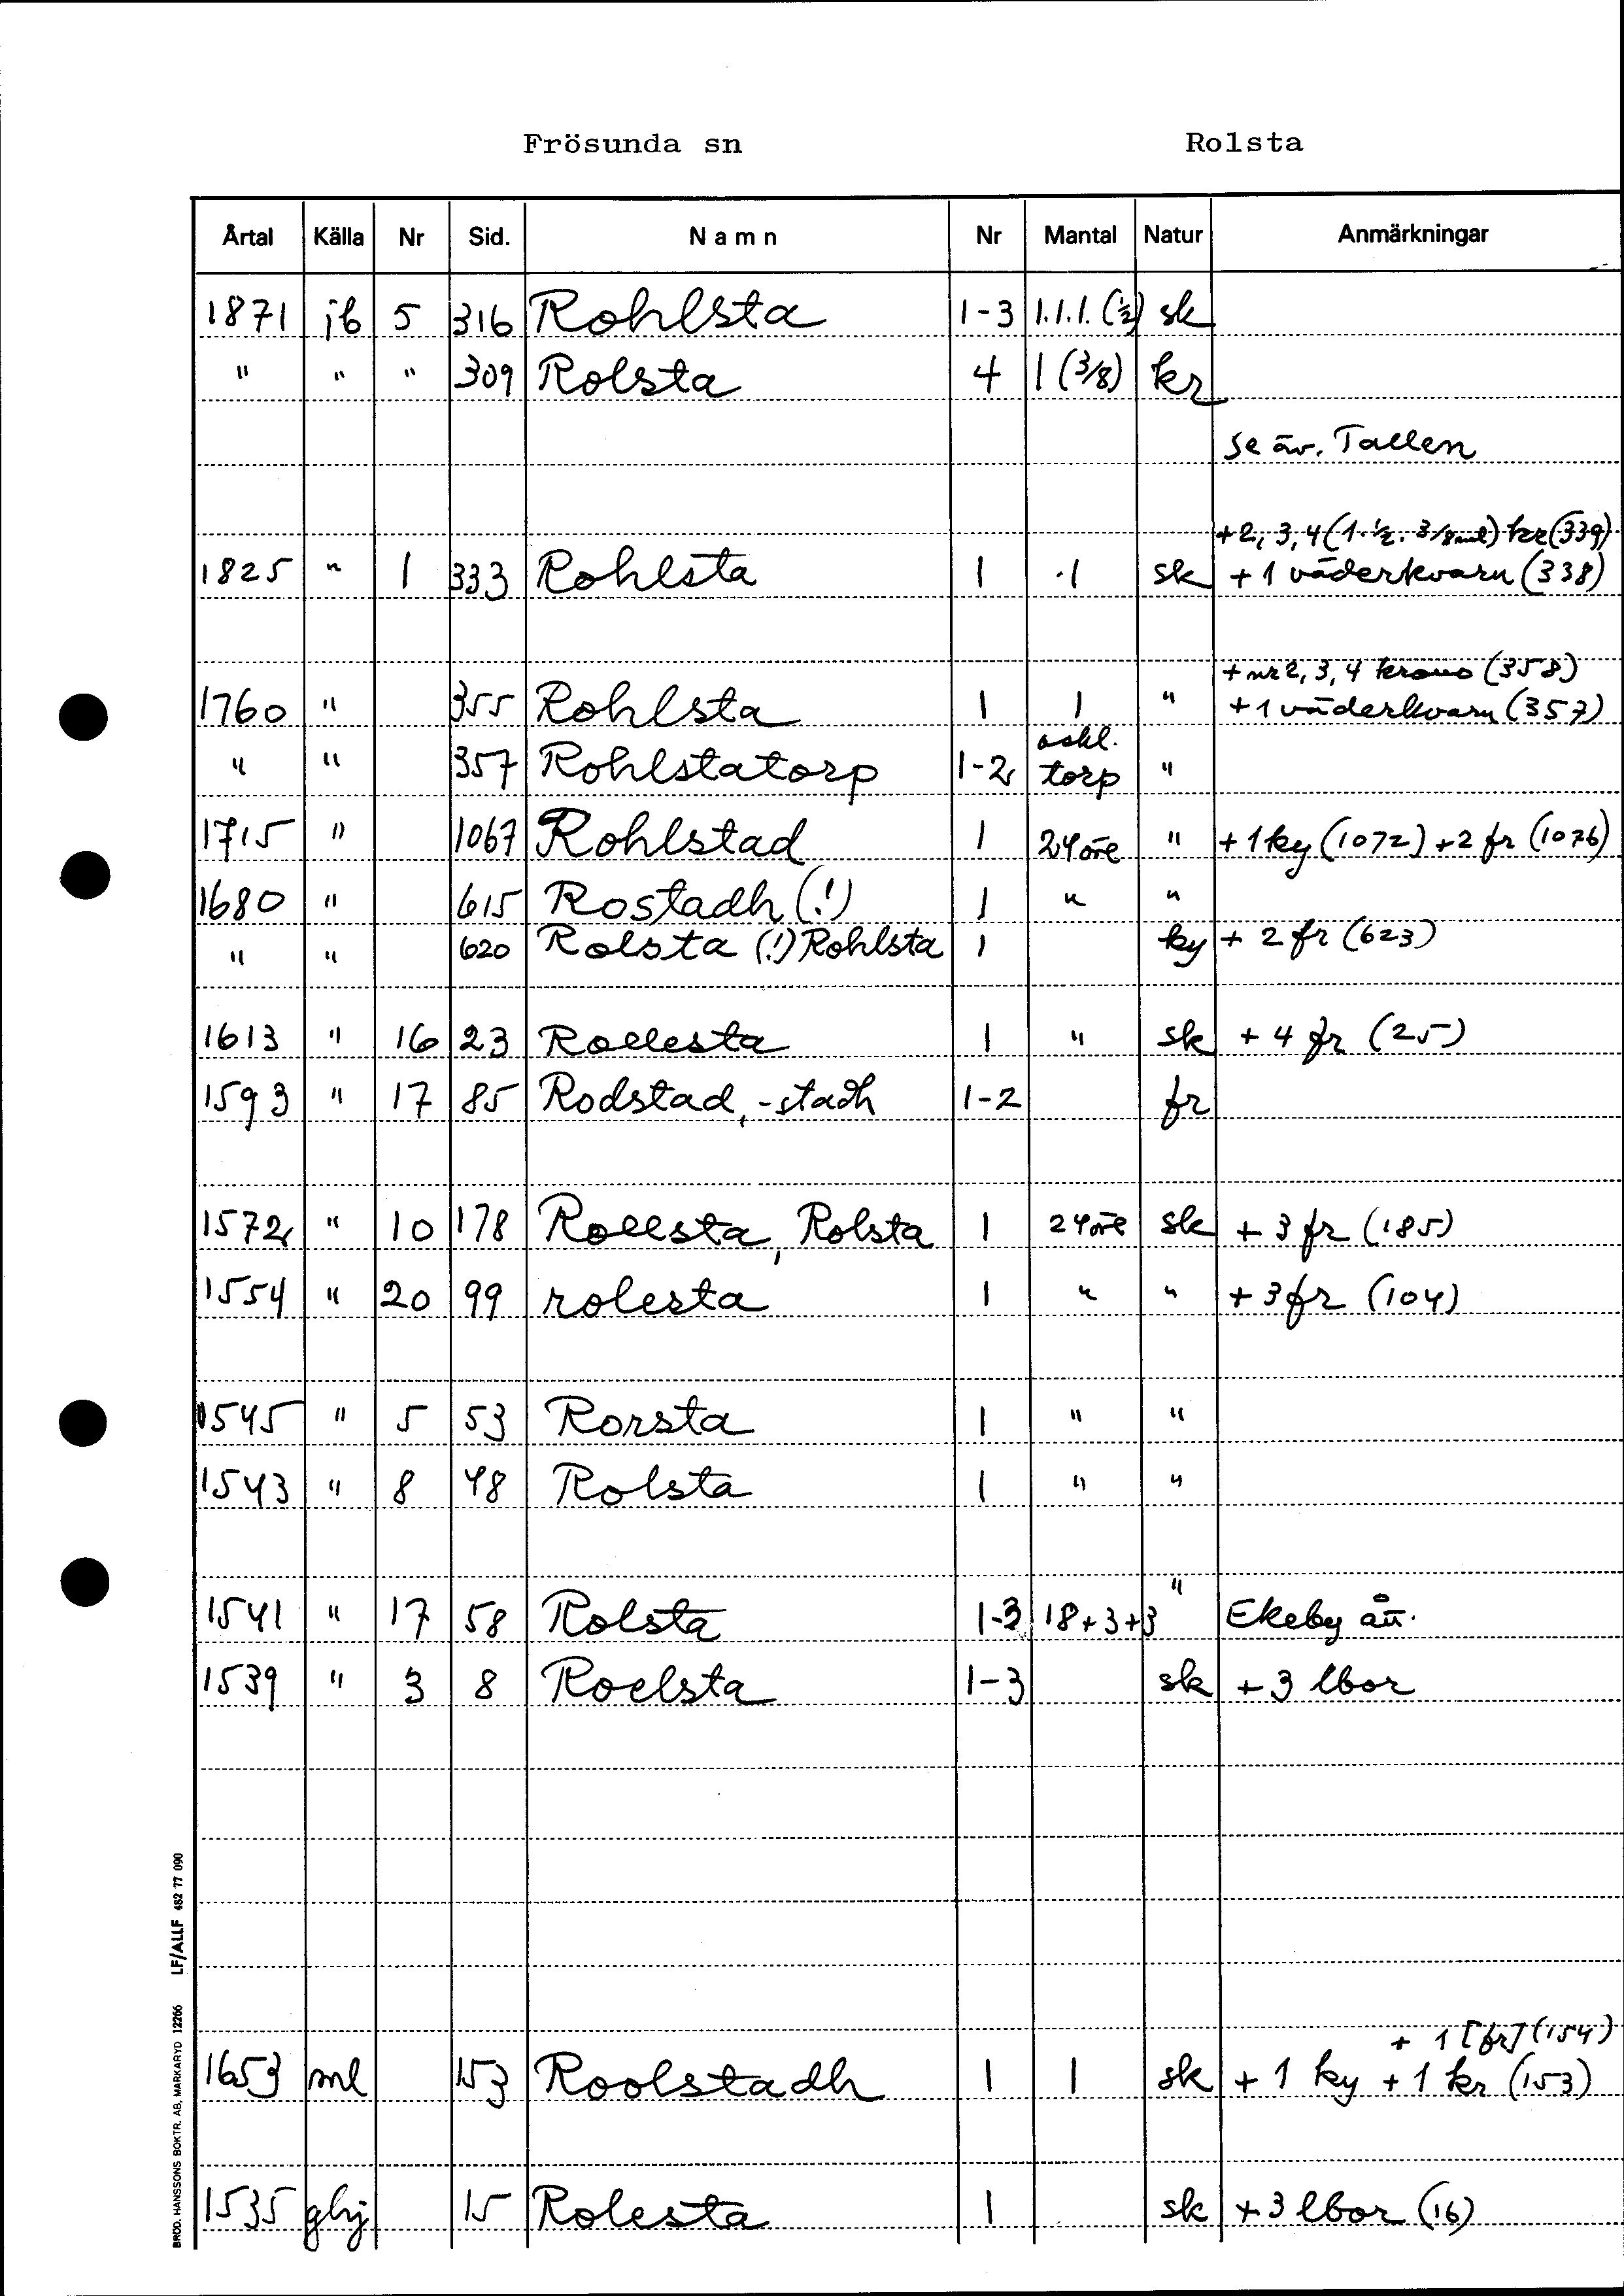 Frösunda sn Rolsta
Årtal Källa Nr Sid. Namn Nr Mantal Natur Anmärkningar
1871 jb 5 316 Rohlsta 1-3 1.1.1. (½) sk
" " " 309 Rolsta 4 1 (3/8) kr
se äv. Tallen
+2, 3, 4 (1. ½. 3/8 ml) kr (339)
1825 " 1 333 Rohlsta 1 1 sk +1 väderkvarn (338)
+ nr 2, 3, 4 krono (358)
1760 " 355 Rohlsta 1 1 " +1 väderkvarn (357)
" " 357 Rohlstatorp 1-2 oskl. torp "
1715 " 1067 Rohlstad 1 24 öre " +1 ky (1072) +2 fr (1076)
1680 " 615 Rostadh (!) 1 " "
" " 620 Rolsta (!) Rohlsta 1 ky + 2 fr (623)
1613 " 16 23 Rollesta 1 " sk + 4 fr (25)
1593 " 17 85 Rodstad, -stadh 1-2 fr
1572 " 10 178 Rollsta, Rolsta 1 24 öre sk + 3 fr (185)
1554 " 20 99 rolesta 1 " " + 3 fr (104)
1545 " 5 53 Rorsta 1 " "
1543 " 8 48 Rolsta 1 " "
1541 " 17 58 Rolsta 1-3 18+3+3 " Ekeby ått.
1539 " 3 8 Roelsta 1-3 sk + 3 lbor
+ 1 [fr] (154)
1653 ml 153 Roolstadh 1 1 sk + 1 ky + 1 kr (153)
1535 ghj 15 Rolesta 1 sk + 3 lbor (16)
BRÖD. HANSSONS BOKTR. AB, MARKARYD 12266 LF/ALLF 482 77 090